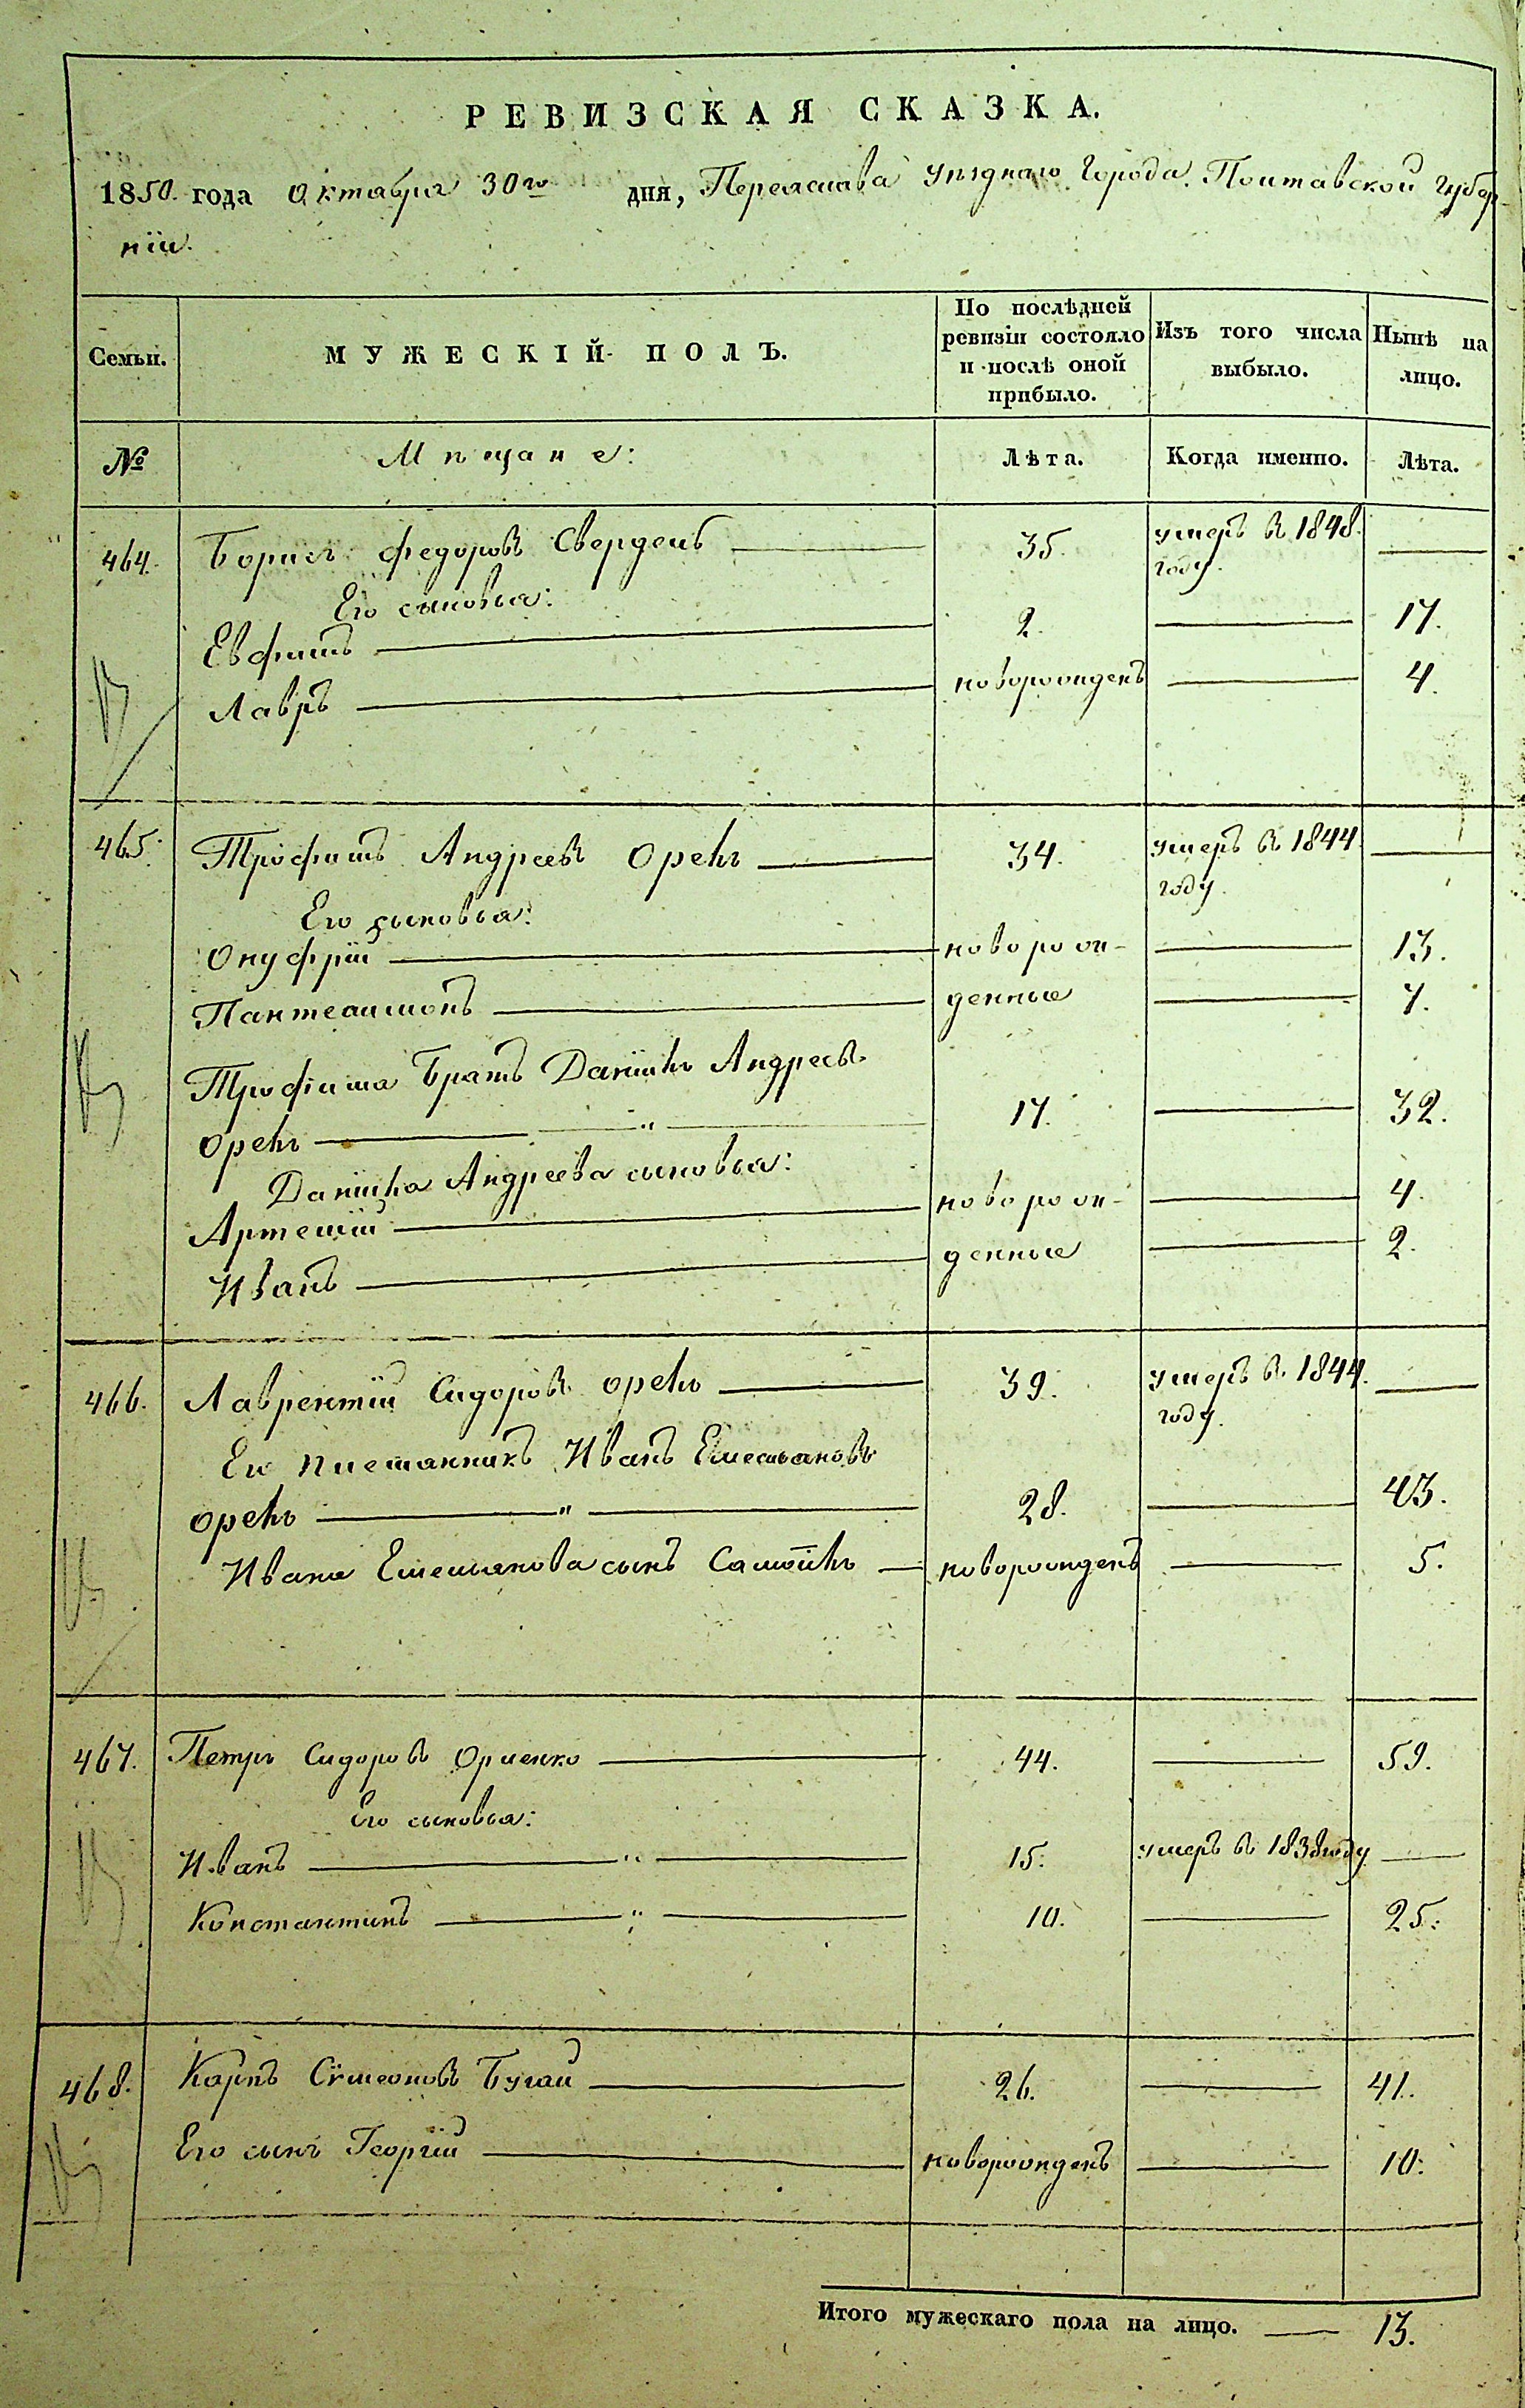 РЕВИЗСКАЯ СКАЗКА.
1850. года Октября 30го дня, Переяслава уѣзднаго города. Полтавской губер-
нiи.
Семьи. МУЖЕСКIЙ ПОЛЪ. По послѣдней ревизiи состояло и послѣ оной прибыло. Изъ того числа выбыло. Нынѣ на лицо.
№ Мѣщане: Лѣта. Когда именно. Лѣта.
464. Борисъ Федоровъ 35. умеръ въ 1848. году.
Его сыновья:
Евфимъ 2. 17.
Лавръ новорожденъ 4.
465. Трофимъ Андреевъ Орелъ 34. умеръ въ 1844. году.
Его сыновья:
Онуфрiй новорож- 13.
Пантелимонъ денные 7.
Трофима братъ Данiилъ Андреевъ
Орелъ " 17. 32.
Данiила Андреева сыновья:
Артемiй новорож- 4.
Иванъ денные 2.
466. Лаврентiй Сидоровъ Орелъ 39. умеръ въ 1844. году.
Его племянникъ Иванъ Емельяновъ
Орелъ " 28. 43.
Ивана Емельянова сынъ Самойлъ новорожденъ 5.
467. Петръ Сидоровъ Орленко 44. 59.
Его сыновья:
Иванъ " 15. умеръ въ 1838 году
Константинъ " 10. 25.
468. Карпъ Сѵмеоновъ Бугай 26. 41.
Его сынъ Георгiй новорожденъ 10.
Итого мужескаго пола на лицо. 13.